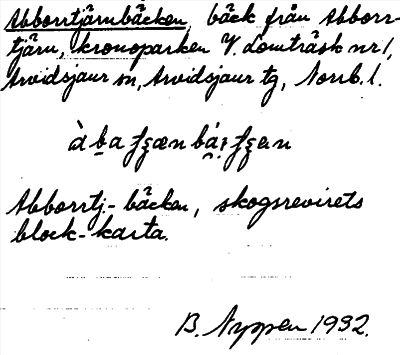 Abborrtjärnbäcken, bäck från Abborr-
tjärn, kronoparken V. Lomträsk nr 1,
Arvidsjaur sn, Arvidsjaur tg, Norrb. l.
Abborrtj.-bäcken, skogsrevirets
block-karta.
B. Nyppen 1932.